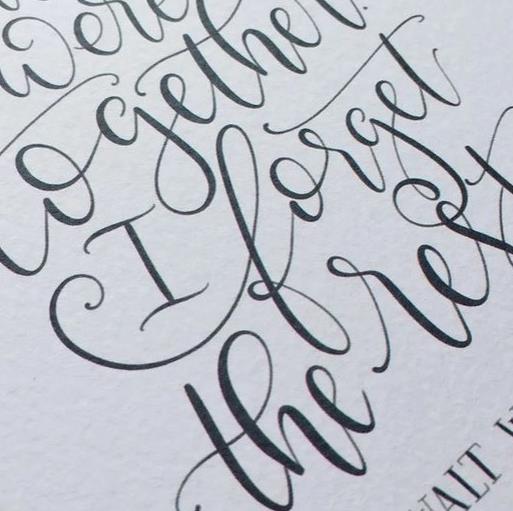 were
together.
I forget
the rest
WALT